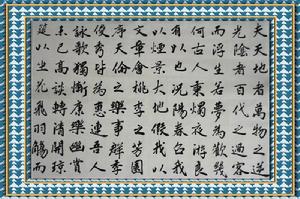 夫天地者萬物之逆
光陰者百代之過客
而浮生若夢為歡幾
何古人秉燭夜游良
有以也況陽春召我
以煙景大塊假我以
文章會桃李之芳園
序天倫之樂事群季
俊秀皆為惠連吾人
詠歌獨慚康樂幽賞
未已高談轉清開瓊
筵以坐花飛羽觴而